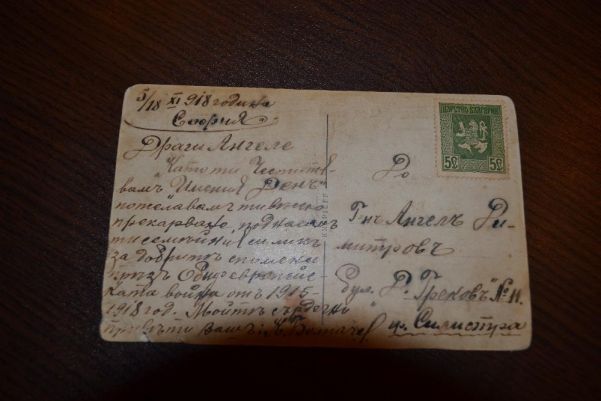 5/18 XI 918 година
София
Драги Ангеле
Като ти честитя-
вамъ Имения Денъ
пожелавамъ ти весело
прекарване, поднасямъ
ти семейния си ликъ
за добритѣ спомени
презъ Общоевропейс-
ката война отъ 1915-
1918 год. Моитѣ сърдечни
привѣти Вашъ:
ЦАРСТВО БЪЛГАРИЯ
5 5
До
Гнъ Ангелъ Ди-
митровъ
бул. "Д. Грековъ" № 11.
гр. Силистра